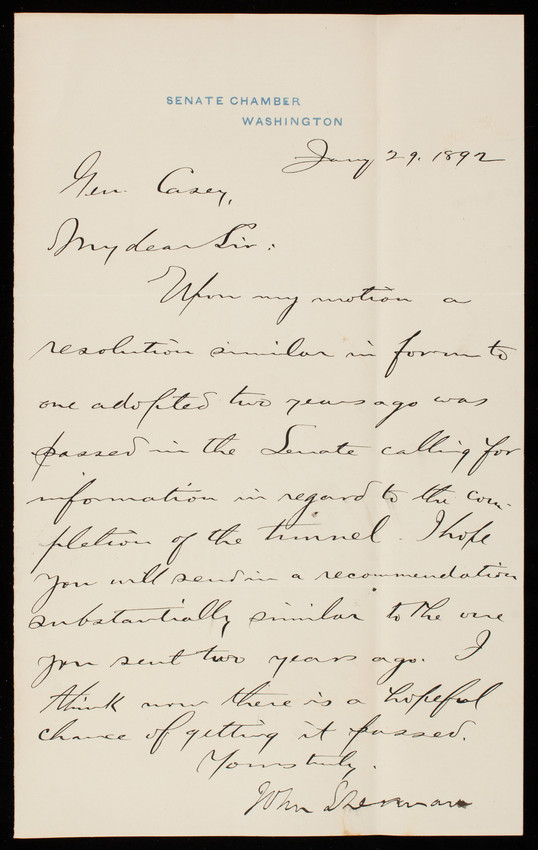 SENATE CHAMBER
WASHINGTON
Jany 29. 1892
Gen. Casey,
My dear Sir:
Upon my motion a
resolution similar in form to
one adopted two years ago was
passed in the Senate calling for
information in regard to the com-
pletion of the tunnel. I hope
you will send in a recommendation
substantially similar to the one
you sent two years ago. I
think now there is a hopeful
chance of getting it passed.
Yours truly,
John Sherman